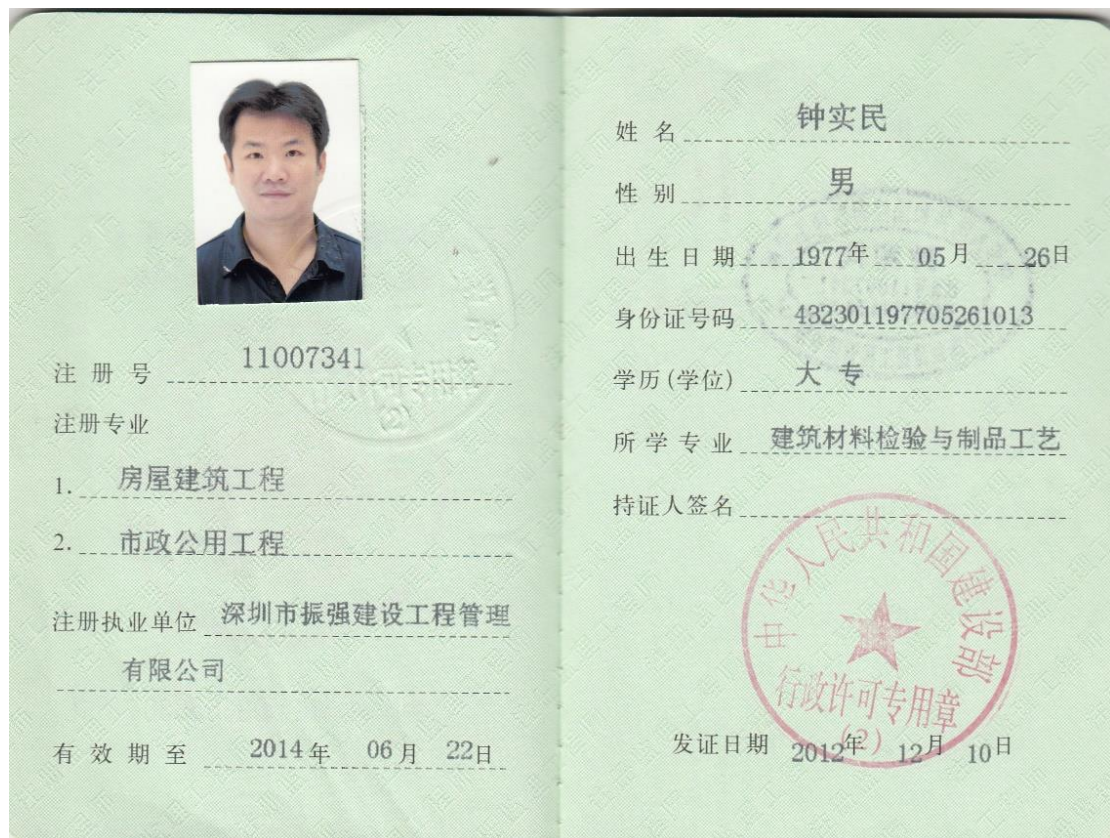 注 册 号 11007341
注册专业
1. 房屋建筑工程
2. 市政公用工程
注册执业单位 深圳市振强建设工程管理
有限公司
有 效 期 至 2014年 06月 22日
姓 名 钟实民
性 别 男
出 生 日 期 1977年 05月 26日
身份证号码 432301197705261013
学历(学位) 大 专
所 学 专 业 建筑材料检验与制品工艺
持证人签名
中华人民共和国建设部
行政许可专用章
(2)
发证日期 2012年 12月 10日